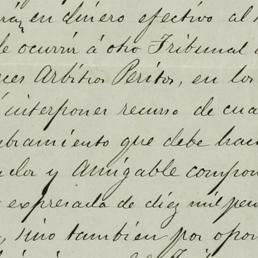 en dinero efectivo al
de ocurrir á otro Tribunal
ces Arbitros Peritos, en los
interponer recurso de cua
bramiento que debe hac
dor y Amigable compon
expresada de diez mil pe
, sino también por opo